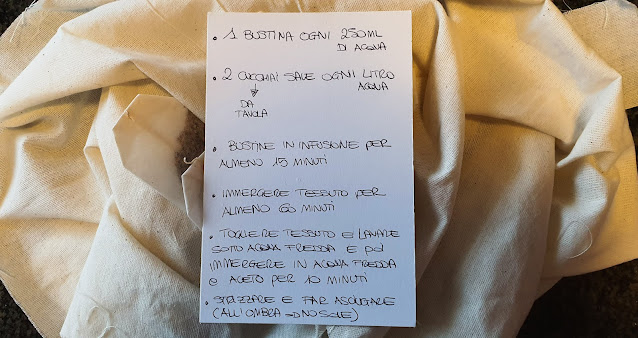 • 1 BUSTINA OGNI 250ML
DI ACQUA
• 2 CUCCHIAI SALE OGNI LITRO
ACQUA
DA
TAVOLA
• BUSTINE IN INFUSIONE PER
ALMENO 15 MINUTI
• IMMERGERE TESSUTO PER
ALMENO 60 MINUTI
• TOGLIERE TESSUTO E LAVARE
SOTTO ACQUA FREDDA E POI
IMMERGERE IN ACQUA FREDDA
E ACETO PER 10 MINUTI
• STRIZZARE E FAR ASCIUGARE
(ALL'OMBRA → NO SOLE)